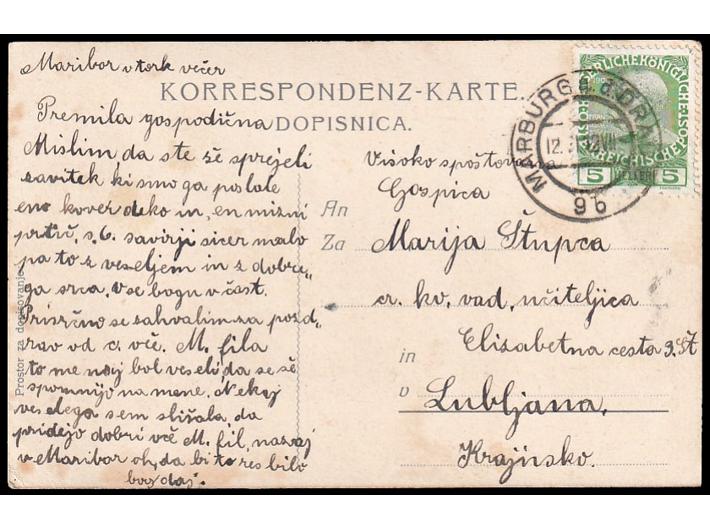 Maribor v tork večer
KORRESPONDENZ-KARTE.
DOPISNICA.
Premila gospodična
Mislim da ste že sprejeli
zavitek ki smo ga poslale
eno kover deko in, en mizni
prtič, s. 6. savirji sicer malo
pa to z veseljem in z dobre„
ga srca, vse bogu v čast.
Prisrčno se zahvalim za pozd„
rav od č. vče. M. fila
to me naj bol veseli, da se še
spomnijo na mene. Nekaj
veselega sem slišala da
pridejo dobri vče M. fil, nazaj
v Maribor oh, da bi to res bilo
bog daj.
Prostor za dopisovanje
Visoko spoštovana
Gospica
An
Za
Marija Štupca
cr. kv. vad. učiteljica
Elizabetna cesta 3. Št
in
v
Lubljana.
Krajnsko.
MARBURG a. d. DRAU
12.
9b
5 HELLER 5